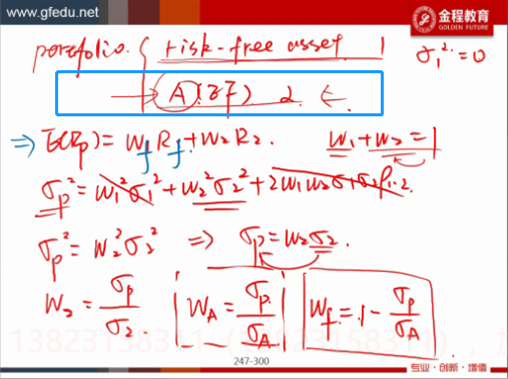 www.gfedu.net
金程教育
GOLDEN FUTURE
portfolio. { risk-free asset 1 σ₁²=0
→ A 2 ←
⇒ E(Rp)= Wf Rf + W₂ R₂. W₁+W₂=1
σp²=W₁²σ₁²+W₂²σ₂²+2W₁W₂σ₁σ₂ρ₁.₂
σp²=W₂²σ₂² ⇒ σp=W₂σ₂.
W₂=σp/σ₂. WA=σp/σA Wf=1-σp/σA
247-300
专业·创新·增值